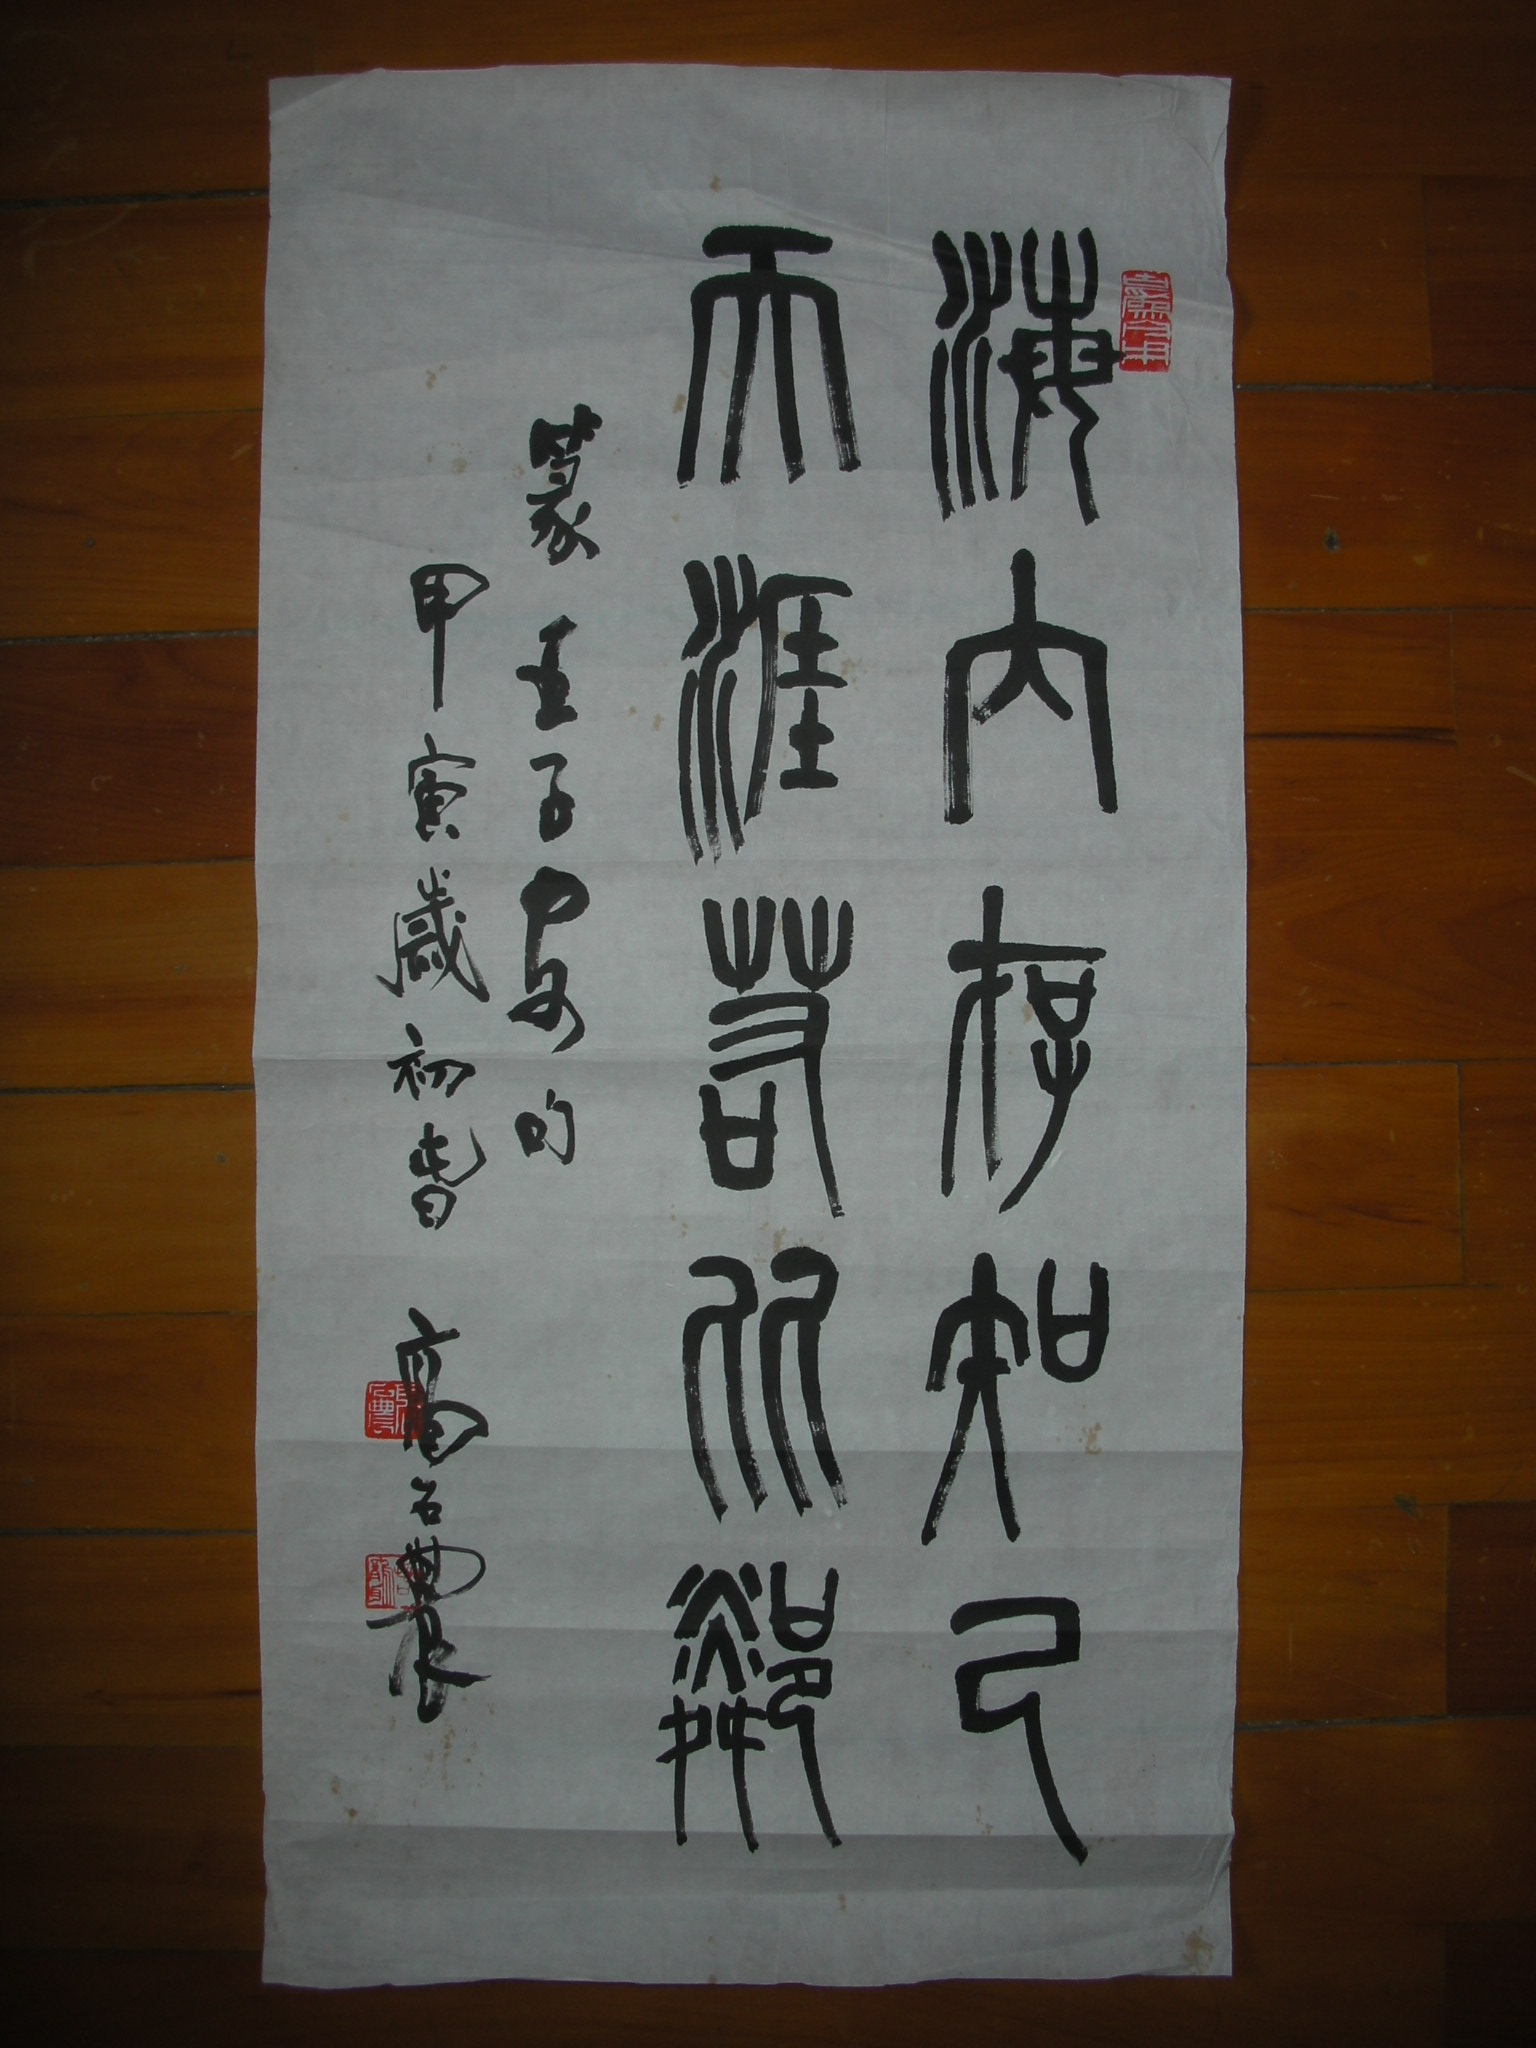 海内存知己
天涯若比鄰
篆王子安句
甲寅歲初春 高石農